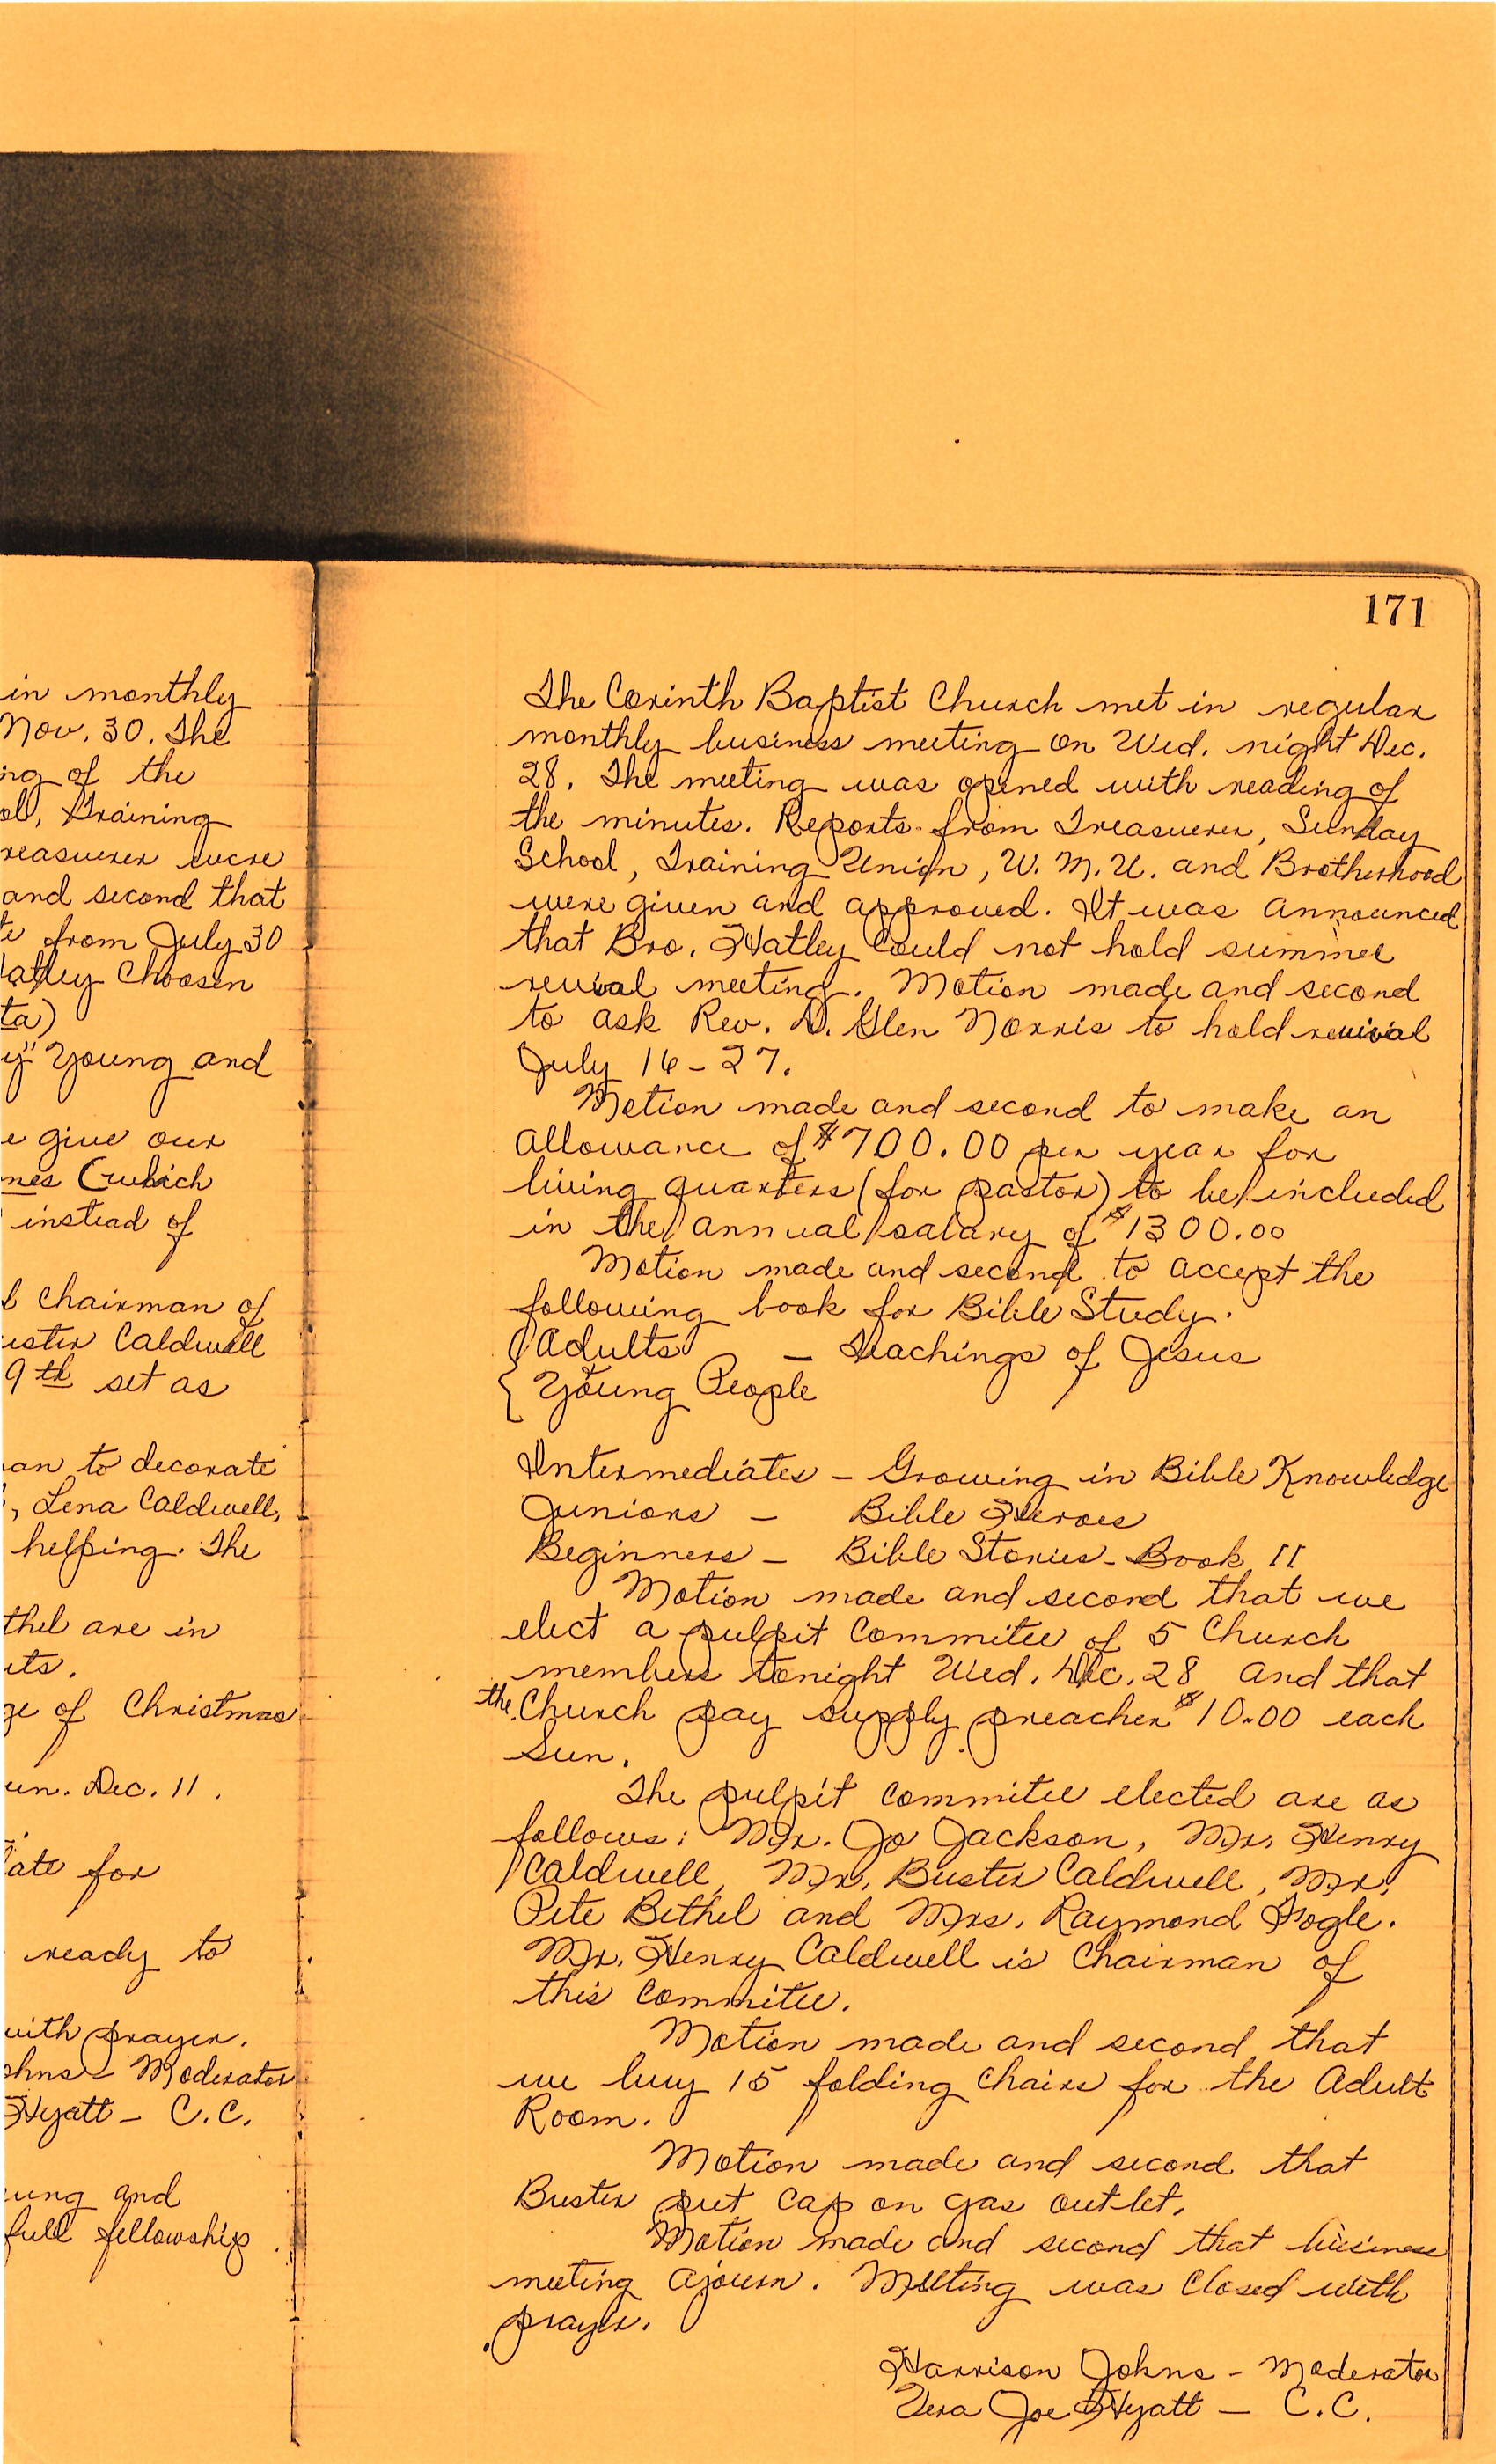 in monthly
Nov. 30. The
ng of the
ol, Training
reasuerer were
and second that
te from July 30
atley Choosen
ta)
y" Young and
e give our
mes (which
instead of
l Chairman of
uster Caldwell
9th set as
an to decorate
, Lena Caldwell,
helping. The
thel are in
ets.
ge of Christmas
un. Dec. 11.
ate for
ready to
with prayer.
ohns - Moderator
Hyatt - C.C.
ung and
full fellowship
171
The Corinth Baptist Church met in regular
monthly business meeting on Wed. night Dec.
28. The meeting was opened with reading of
the minutes. Reports from Treasuerer, Sunday
School, Training Union, W.M.U. and Brotherhood
were given and approved. It was announced
that Bro. Hatley could not hold summer
revival meeting. Motion made and second
to ask Rev. D. Glen Norris to hold revival
July 16-27.
Motion made and second to make an
allowance of $700.00 per year for
living quarters (for pastor) to be included
in the annual salary of $1300.00
Motion made and second to accept the
following book for Bible Study.
Adults - Teachings of Jesus
& Young People
Intermediates - Growing in Bible Knowledge
Juniors - Bible Heroes
Beginners - Bible Stories - Book II
Motion made and second that we
elect a pulpit Commitee of 5 Church
members tonight Wed. Dec. 28 and that
the Church pay supply preacher $10.00 each
Sun.
The pulpit commitee elected are as
follows: Mr. Jo Jackson, Mr. Henry
Caldwell, Mr. Buster Caldwell, Mr.
Pete Bethel and Mrs. Raymond Fogle.
Mr. Henry Caldwell is Chairman of
this Commitee.
Motion made and second that
we buy 15 folding Chairs for the Adult
Room.
Motion made and second that
Buster put cap on gas outlet.
Motion made and second that business
meeting ajourn. Meeting was Closed with
prayer.
Harrison Johns - Moderator
Vera Joe Hyatt - C.C.